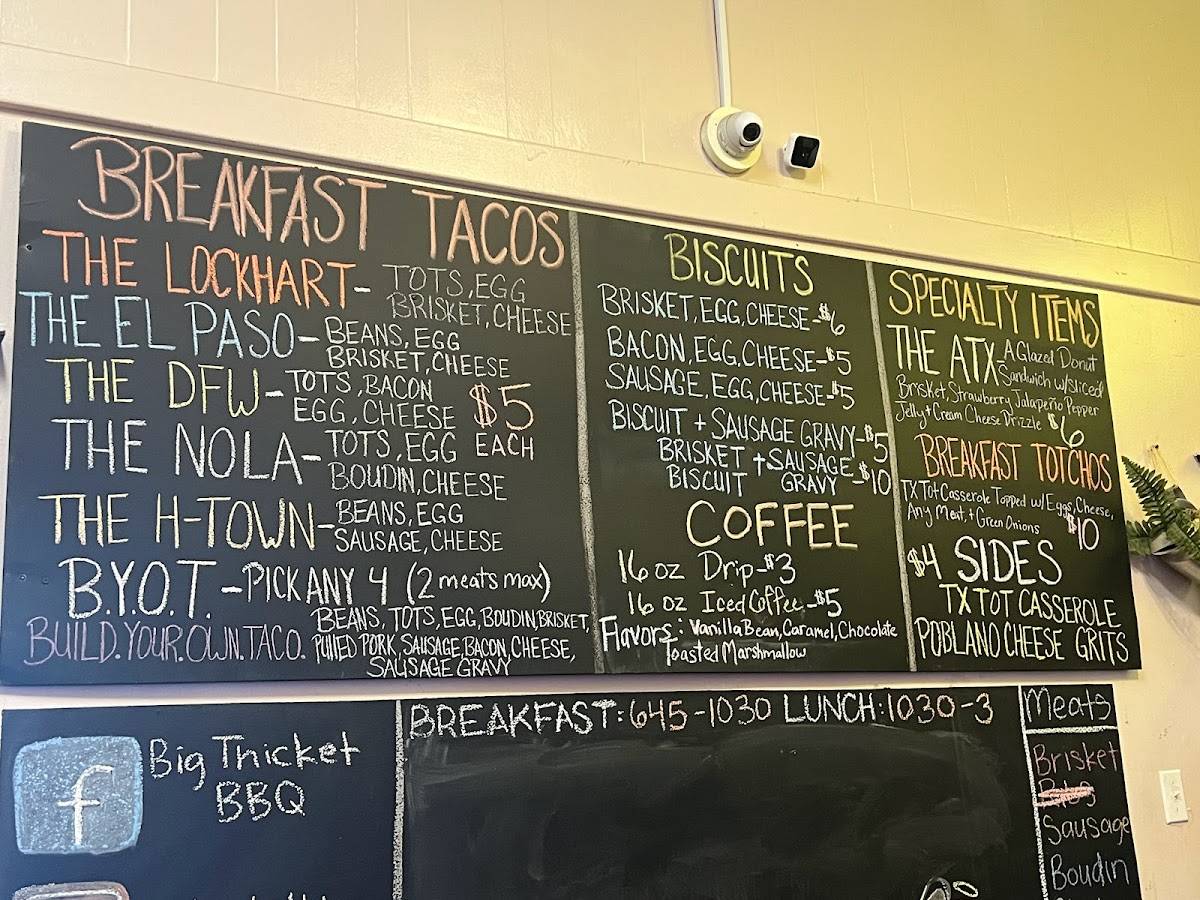 BREAKFAST TACOS
THE LOCKHART- TOTS, EGG
BRISKET, CHEESE
THE EL PASO- BEANS, EGG
BRISKET, CHEESE
THE DFW- TOTS, BACON
EGG, CHEESE
$5
EACH
THE NOLA- TOTS, EGG
BOUDIN, CHEESE
THE H-TOWN- BEANS, EGG
SAUSAGE, CHEESE
B.Y.O.T.-PICK ANY 4 (2 meats max)
BUILD.YOUR.OWN.TACO.
BEANS, TOTS, EGG, BOUDIN, BRISKET,
PULLED PORK, SAUSAGE, BACON, CHEESE,
SAUSAGE GRAVY
BISCUITS
BRISKET, EGG, CHEESE-$6
BACON, EGG, CHEESE-$5
SAUSAGE, EGG, CHEESE-$5
BISCUIT + SAUSAGE GRAVY-$5
BRISKET + SAUSAGE
BISCUIT GRAVY -$10
COFFEE
16 oz Drip-$3
16 oz Iced Coffee-$5
Flavors: Vanilla Bean, Caramel, Chocolate
Toasted Marshmallow
SPECIALTY ITEMS
THE ATX - A Glazed Donut
Sandwich w/sliced
Brisket, Strawberry, Jalapeño Pepper
Jelly + Cream Cheese Drizzle $6
BREAKFAST TOTCHOS
TX Tot Casserole Topped w/ Eggs, Cheese,
Any Meat, + Green Onions $10
$4 SIDES
TX TOT CASSEROLE
POBLANO CHEESE GRITS
f Big Thicket
BBQ
BREAKFAST: 645-1030 LUNCH: 1030-3
Meats
Brisket
Sausage
Boudin